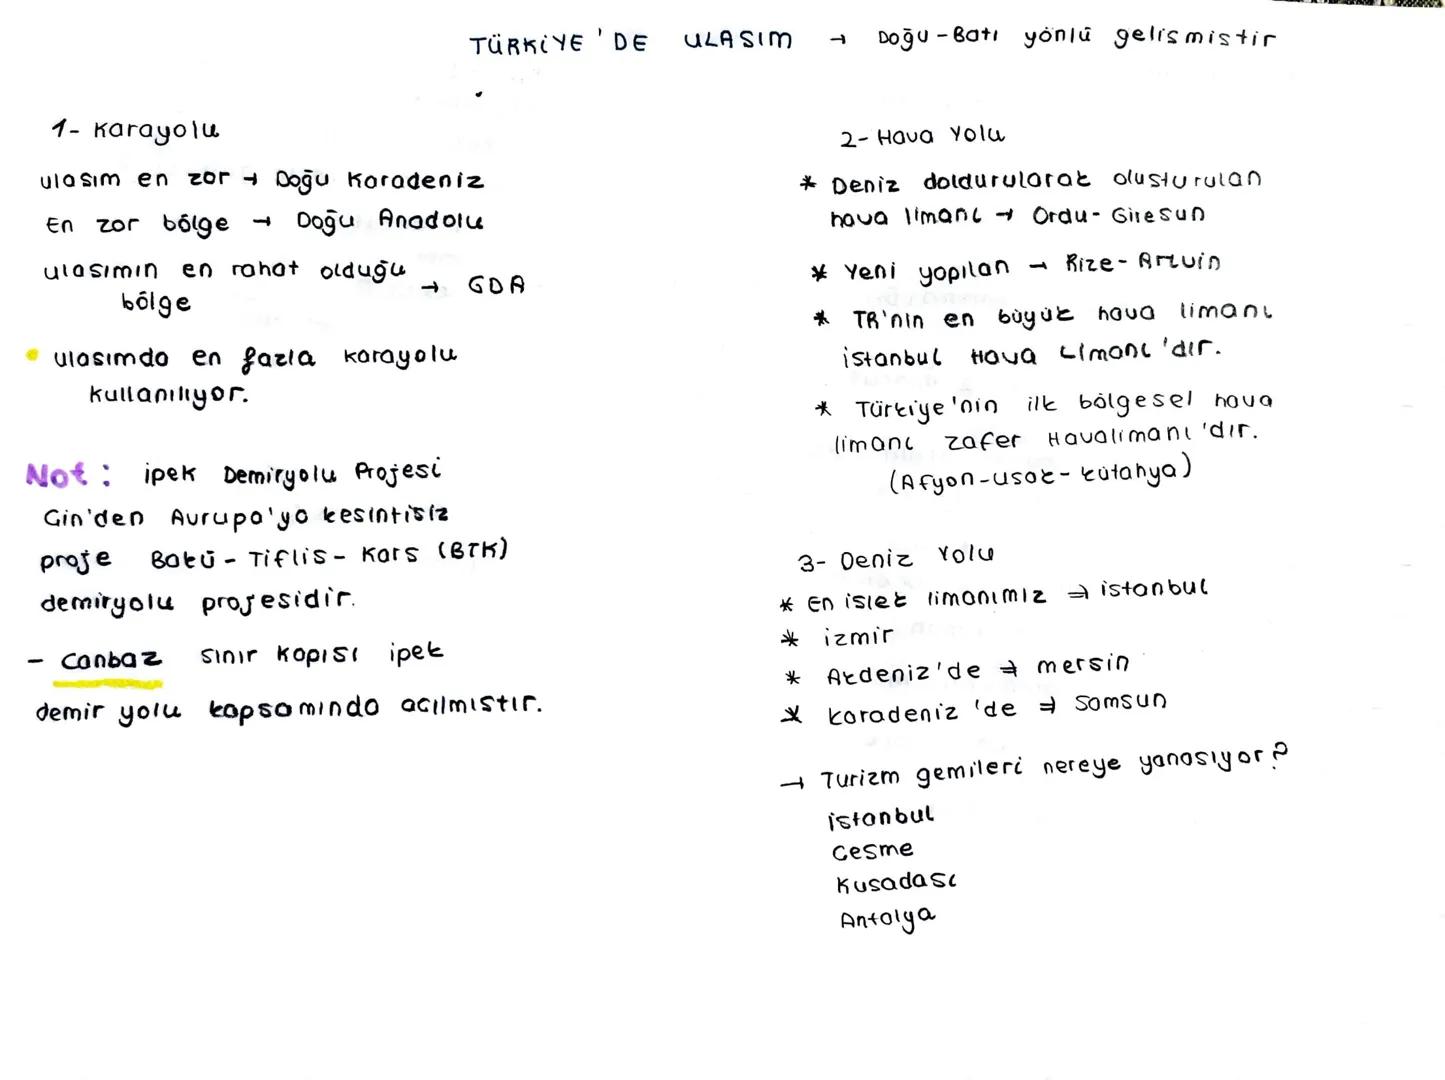 TÜRKİYE'DE ULASIM → Doğu-Batı yönlü gelismistir
1- Karayolu
ulasım en zor → Doğu Karadeniz
En zor bölge → Doğu Anadolu
ulasımın en rahat olduğu bölge → GDA
• ulasımda en fazla karayolu
kullanılıyor.
Not: ipek Demiryolu Projesi
Cin'den Avrupa'ya kesintisiz
proje Bakü - Tiflis - Kars (BTK)
demiryolu projesidir.
- Canbaz sınır kapısı ipek
demir yolu kapsamında acılmıstır.
2- Hava Yolu
* Deniz doldurularak olusturulan
hava limanı → Ordu- Giresun
* Yeni yapılan → Rize- Artvin
* TR'nin en büyük hava limanı
istanbul Hava Limanı'dır.
* Türkiye'nin ilk bölgesel hava
limanı zafer Havalimanı'dır.
(Afyon-usak-kütahya)
3- Deniz Yolu
* En islek limanımız ⇒ istanbul
* izmir
* Akdeniz'de ⇒ mersin
* karadeniz'de ⇒ Samsun
→ Turizm gemileri nereye yanasıyor?
istanbul
Cesme
Kusadası
Antalya